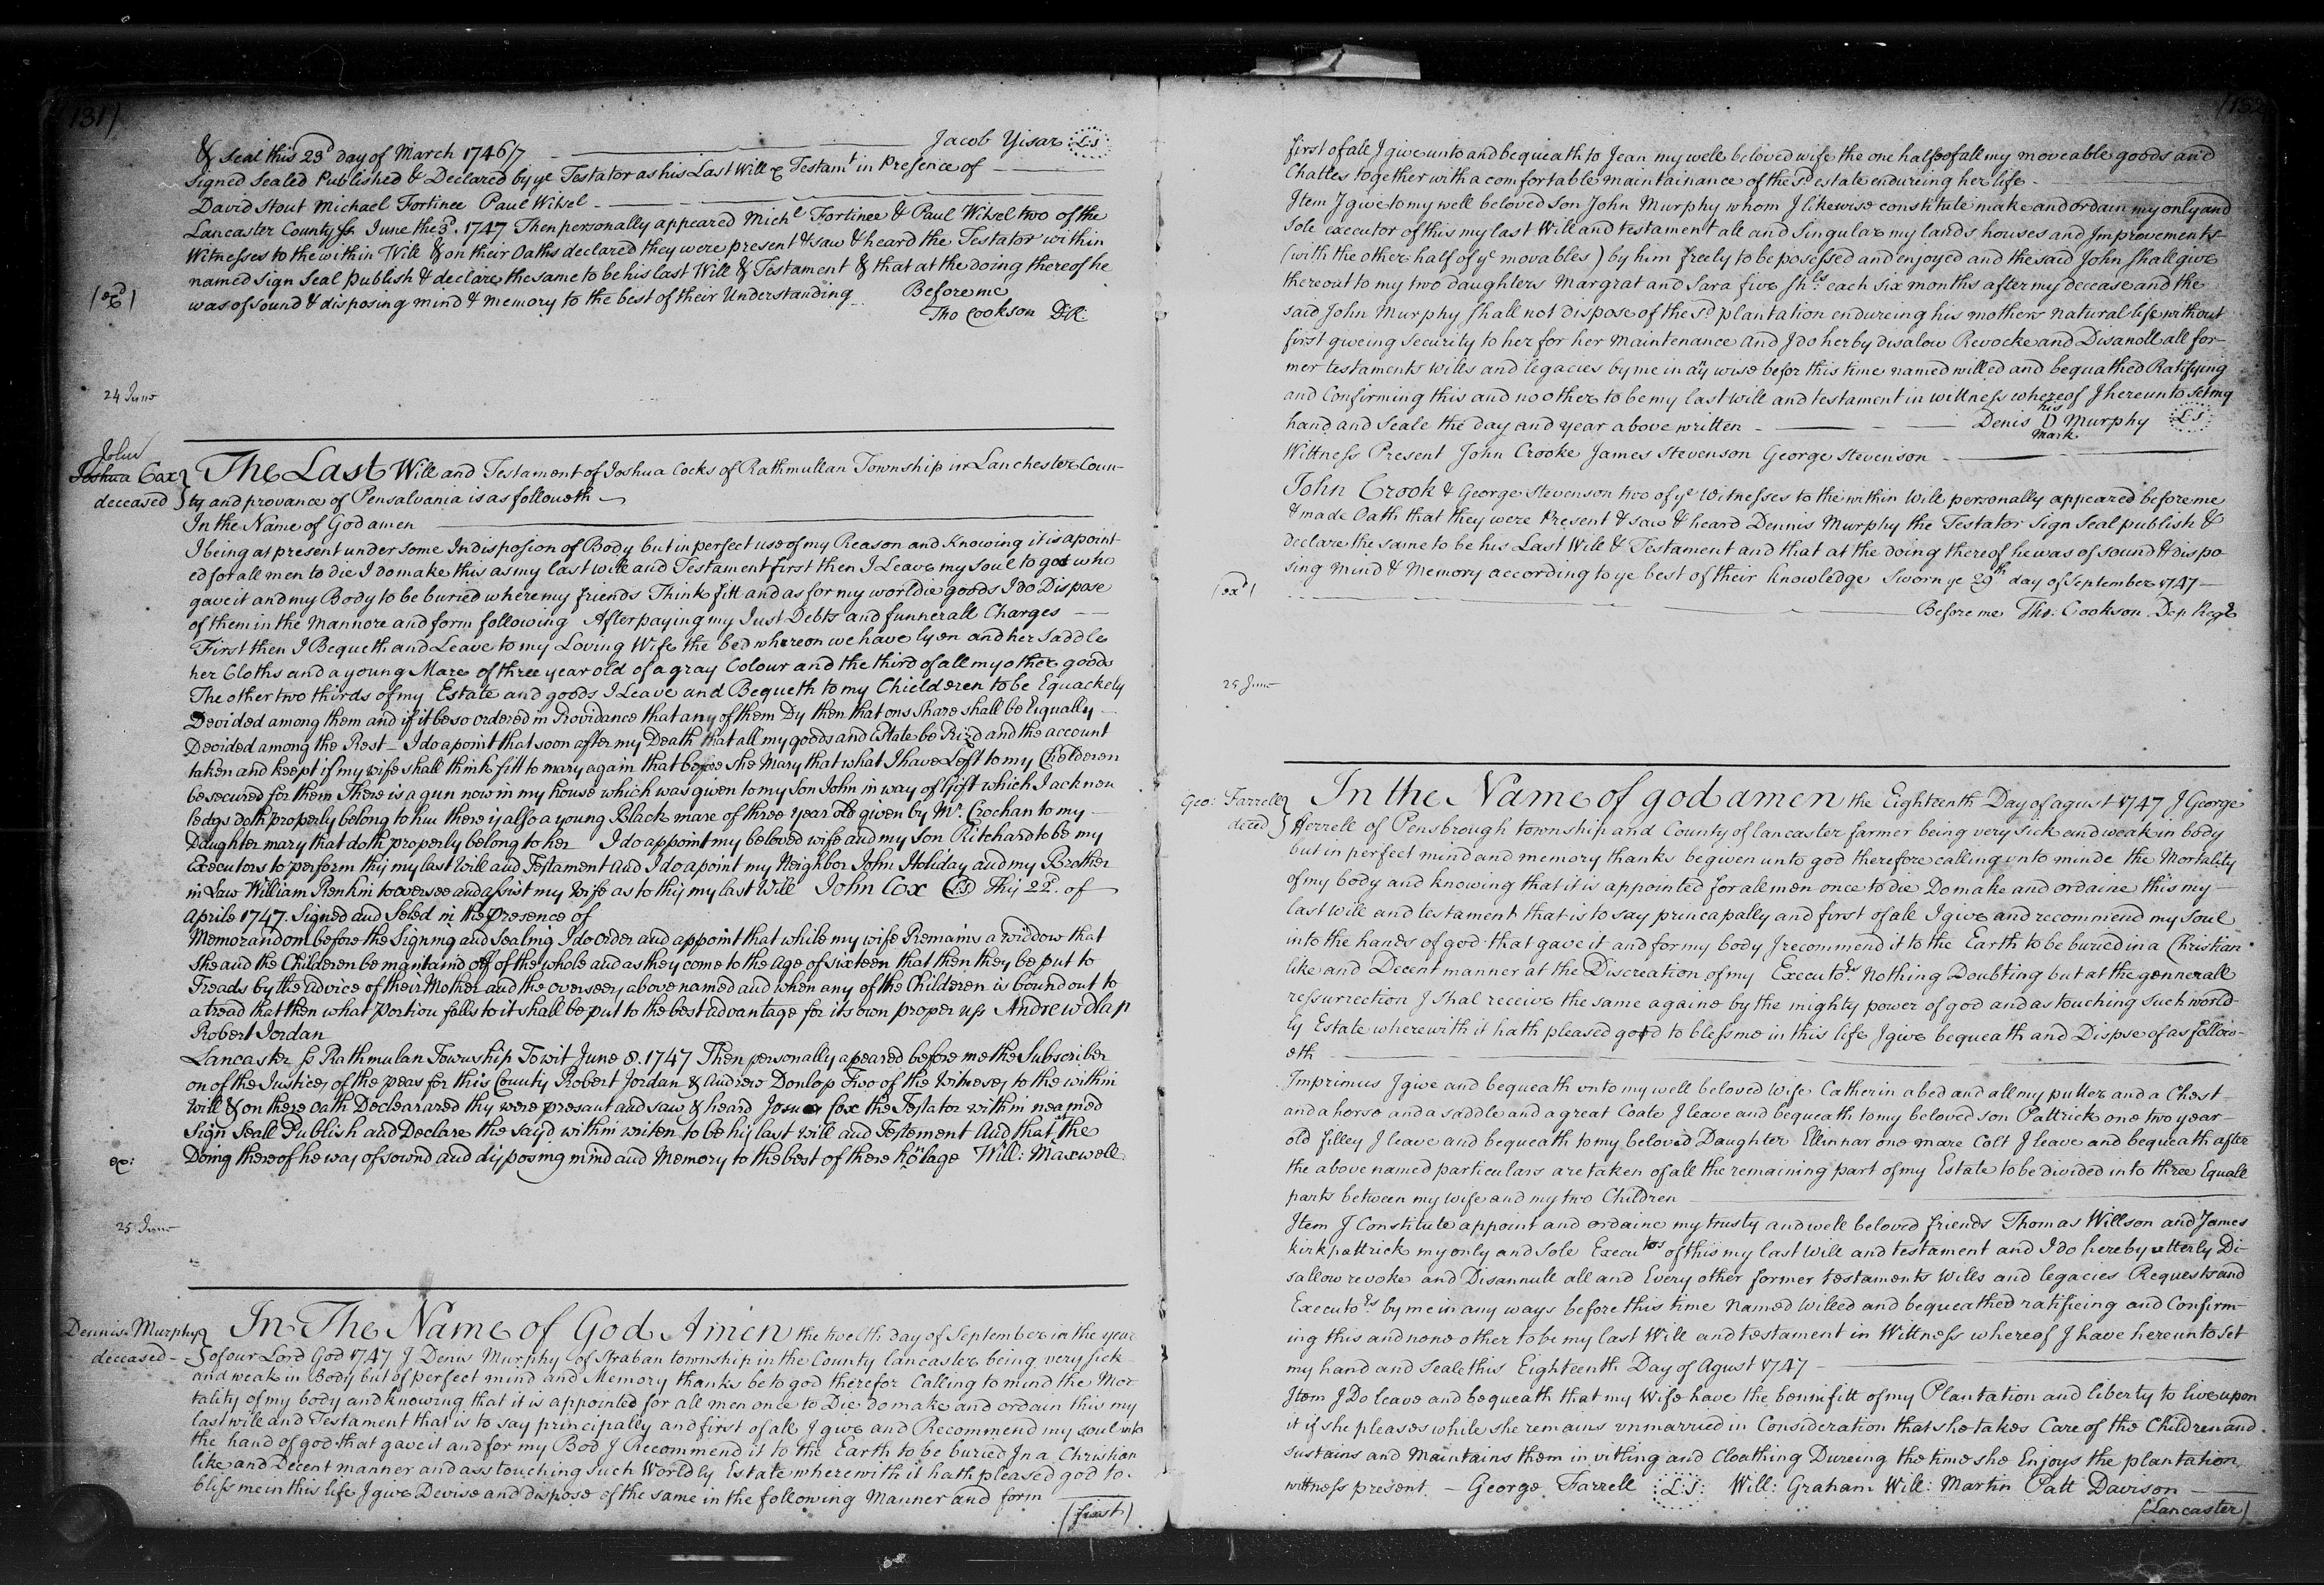 131)
& Seal this 23d day of March 1746/7 Jacob Yisar L:S
Signed Sealed Published & Declared by ye Testator as his Last Will & Testamt in Presence of
David Stout Michael Fortinee Paul Witsel
Lancaster County ss June the 3d. 1747 Then personally appeared Michl Fortinee & Paul Witsel two of the
Witnesses to the within Will & on their Oaths declared they were present & saw & heard the Testator within
named sign Seal publish & declare the same to be his Last Will & Testament & that at the doing thereof he
was of sound & disposing mind & memory to the best of their Understanding Before me
Tho Cookson DR.
24 June
John
Joshua Cax
deceased
The Last Will and Testament of Joshua Cocks of Rathmullan Township in Lanchester Coun-
ty and provance of Pensalvania is as followeth
In the Name of God amen
I being at present under some Indisposion of Body but in perfect use of my Reason and Knowing it is apoint
ed for all men to die I do make this as my last will and Testament first then I Leave my Soul to god who
gave it and my Body to be buried where my friends Think fitt and as for my worldie goods I do Dispose
of them in the Mannore and form following After paying my Just Debts and funnerall Charges
First then I Bequeth and Leave to my Loving Wife the bed whereon we have lyen and her Saddle
her Cloths and a young Mare of three year old of a gray Colour and the third of all my other goods
The other two thirds of my Estate and goods I Leave and Bequeth to my Chielderen to be Equackely
Devided among them and if it be so ordered in Providance that any of them Dy then that ons Share shall be Equally
Devided among the Rest - I do apoint that soon after my Death that all my goods and Estate be Prizd and the account
taken and keept if my wife shall think fitt to mary again that before she Mary that what I have Left to my Chelderen
be secured for them There is a gun now in my house which was given to my Son John in way of Gift which I acknow
ledge doth properly belong to him there is also a young Black mare of three year old given by Mr. Crochan to my
Daughter mary that doth properly belong to her I do appoint my beloved wife and my Son Ritchard to be my
Executors to perform this my last Will and Testament and I do apoint my Neighbor John Holiday and my Brother
in Law William Renkin to oversee and assist my Wife as to this my last Will John Cox LS This 22d. of
Aprile 1747. Signed and Seled in the presence of
Memorandom before the Signing and Sealing I do order and appoint that while my wife Remains a widdow that
she and the Childeren be mantaind off of the whole and as they come to the age of sixteen that then they be put to
Treads by the advice of their Mother and the overseers above named and when any of the Childeren is bound out to
a tread that then what portion falls to it shall be put to the best advantage for its own proper use Andrew Dlap
Robert Jordan
Lancaster ss Rathmulan Township To wit June 8. 1747 Then personally apeared before me the Subscriber
on of the Justices of the peas for this County Robert Jordan & Andrew Donlop Two of the Witneses to the within
Will & on there Oath Declearared thy were presant and saw & heard Josua Cox the Testator within neamed
Sign Seall Publish and Declare the sayd within writen to be his last will and Testement And that at the
Doing thereof he was of sound and disposing mind and Memory to the best of there Nolage Will: Maxwell
ex:
25 June
Dennis Murphy
deceased
In The Name of God Amen the twelth day of September in the year
of our Lord God 1747 I Denis Murphy of Straban township in the County Lancaster being very sick
and weak in Body but of perfect mind and Memory thanks be to god therefor Calling to mind the Mor
tality of my body and knowing that it is appointed for all men once to Die do make and ordain this my
last will and Testament that is to say principally and first of all I give and Recommend my soul into
the hand of god that gave it and for my Bod I Recommend it to the Earth to be buried In a Christian
like and Decent manner and ass touching such Worldly Estate wherewith it hath pleased god to
bless me in this life I give Devise and dispose of the same in the following Manner and form
(first)
(132
first of all I give unto and bequeath to Jean my well beloved wife the one half of all my moveable goods and
Chatles together with a comfortable maintainance of the sd estate endureing her life
Item I give to my well beloved son John Murphy whom I likewise constitute make and ordain my only and
sole executor of this my last Will and testament all and singular my lands houses and Improvements
(with the other half of ye movables) by him freely to be posessed and enjoyed and the said John shall give
thereout to my two daughters Margrat and Sara five shls. each six months after my decease and the
said John Murphy shall not dispose of the sd plantation endureing his mothers natural life without
first giveing security to her for her Maintenance and I do herby disalow Revocke and Disanoll all for-
mer testaments wills and legacies by me in any wise befor this time named willed and bequathed Ratifying
and Confirming this and no other to be my last will and testament in wittness whereof I hereunto set my
hand and seale the day and year above written Denis his D mark Murphy L:S
Wittness Present John Crooke James Stevenson George Stevenson
John Crook & George Stevenson two of ye Witnesses to the within Will personally appeared before me
& made Oath that they were Present & saw & heard Dennis Murphy the Testator sign Seal publish &
declare the same to be his Last Will & Testament and that at the doing thereof he was of sound & dispo
sing mind & Memory according to ye best of their knowledge Sworn ye 29th day of September 1747
(exd)
Before me Tho: Cookson Dep Regr
25 June
Geo: Farrell
deced
In the Name of god amen the Eighteenth Day of agust 1747 I George
Ferrell of Pensbrough township and County of lancaster farmer being very sick and weak in body
but in perfect mind and memory thanks be given unto god therefore calling unto minde the Mortality
of my body and knowing that it is appointed for all men once to die Do make and ordaine this my
last will and testament that is to say princapally and first of all I give and recommend my Soul
into the hands of god that gave it and for my body I recommend it to the Earth to be buried in a Christian
like and Decent manner at the Discreation of my Executors Nothing Doubting but at the gennerall
ressurrection I shal receive the same againe by the mighty power of god and as touching such world-
ly Estate wherewith it hath pleased god to bless me in this life I give bequeath and Dispse of as follow-
eth
Imprimus I give and bequeath unto my well beloved Wife Catherin a bed and all my putter and a Chest
and a horse and a saddle and a great Coate I leave and bequeath to my beloved son Pattrick one two year
old filley I leave and bequeath to my beloved Daughter Ellinnar one mare Colt I leave and bequeath after
the above named particulars are taken of all the remaining part of my Estate to be divided into three Equall
parts between my wife and my two Children
Item I Constitute appoint and ordaine my trusty and well beloved friends Thomas Willson and James
kirkpattrick my only and Sole Executors of this my last Will and testament and I do hereby utterly Di-
sallow revoke and Disannull all and Every other former testaments Wills and legacies Requests and
Executors by me in any ways before this time Named Willed and bequeathed ratifieing and Confirm-
ing this and none other to be my last Will and testament in Wittness whereof I have hereunto Set
my hand and Seale this Eighteenth Day of Agust 1747
Item I Do leave and bequeath that my Wife have the bennifitt of my Plantation and liberty to live upon
it if she pleases while she remains unmarried in Consideration that she takes Care of the Children and
sustains and Maintains them in vitling and Cloathing Dureing the time she Enjoys the plantation
wittness present George Farrell L:S: Will: Graham Will: Martin Patt Davison
(Lancaster)